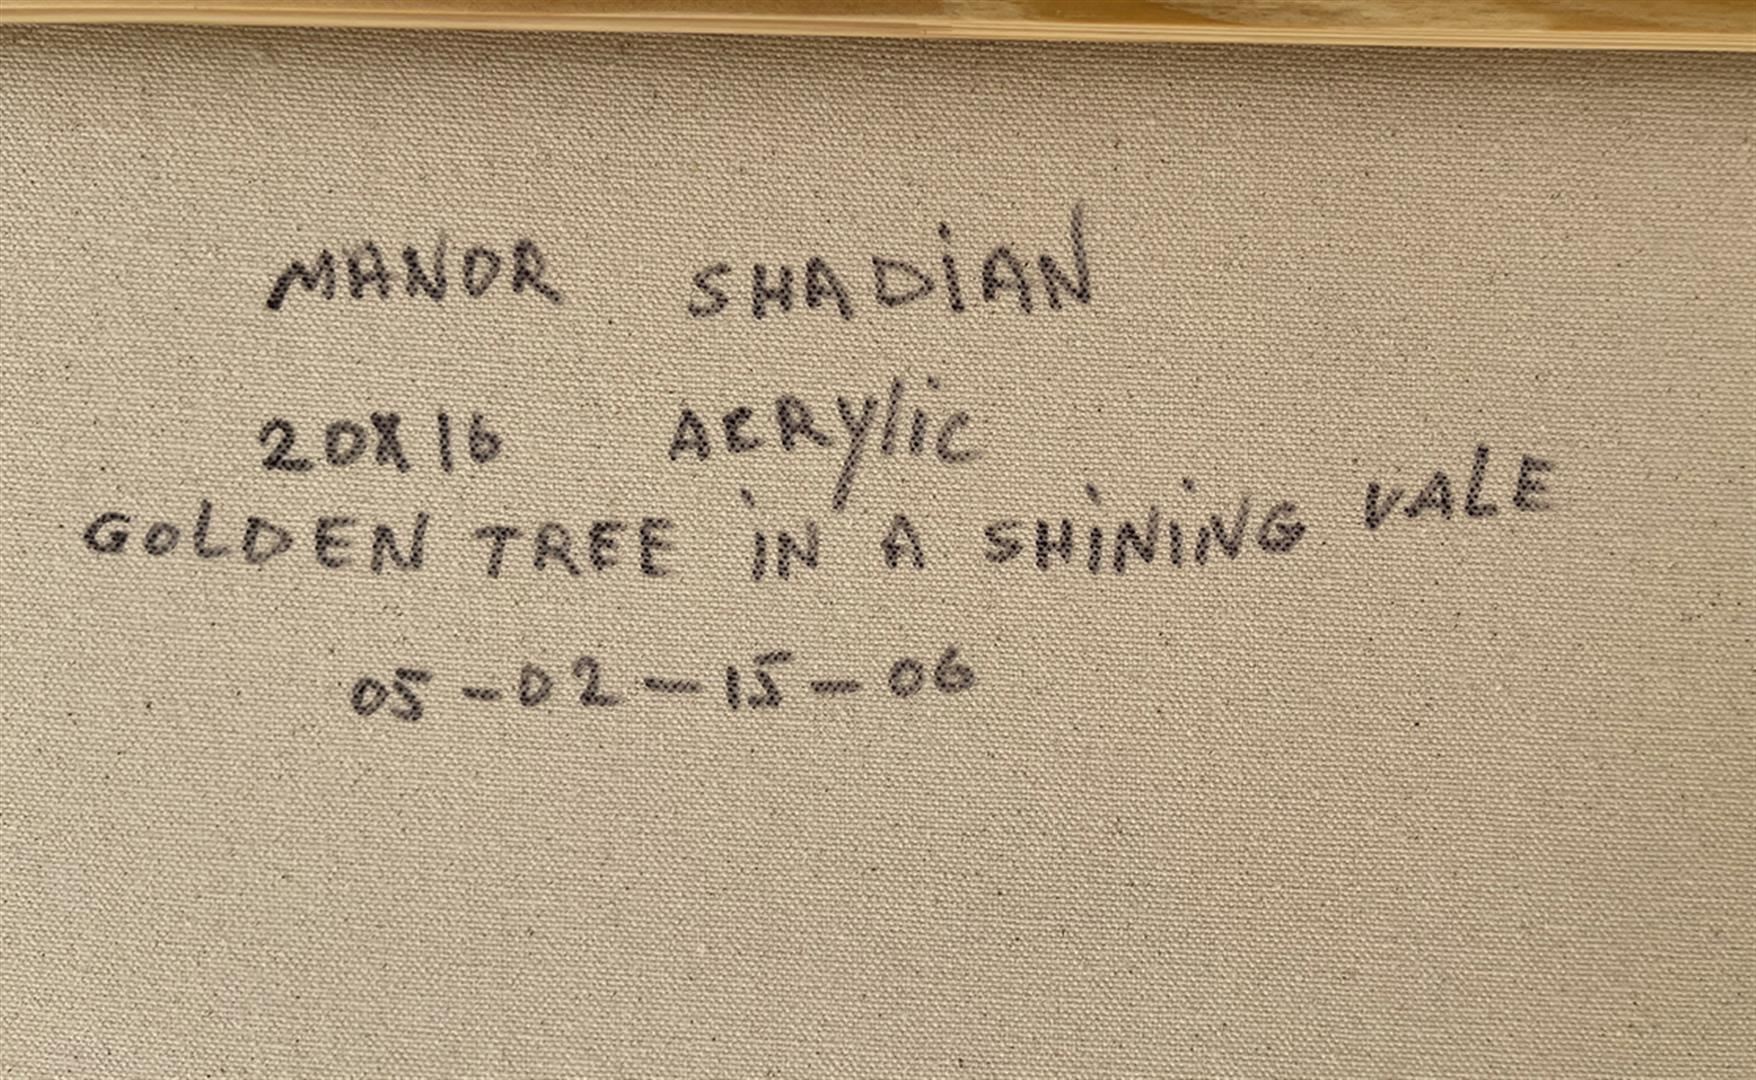 MANOR SHADiAN
20X16 ACRYlic
GOLDEN TREE iN A SHiNiNG VALE
05-02-15-06